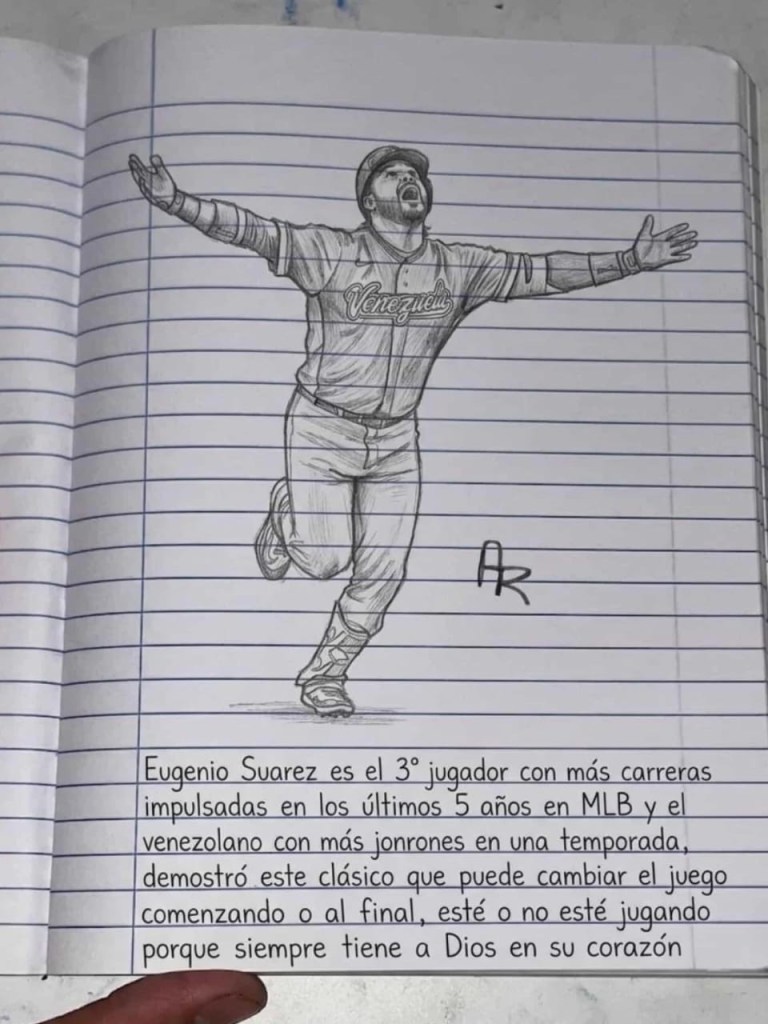 Venezuela
AR
Eugenio Suarez es el 3° jugador con más carreras
impulsadas en los últimos 5 años en MLB y el
venezolano con más jonrones en una temporada,
demostró este clásico que puede cambiar el juego
comenzando o al final, esté o no esté jugando
porque siempre tiene a Dios en su corazón